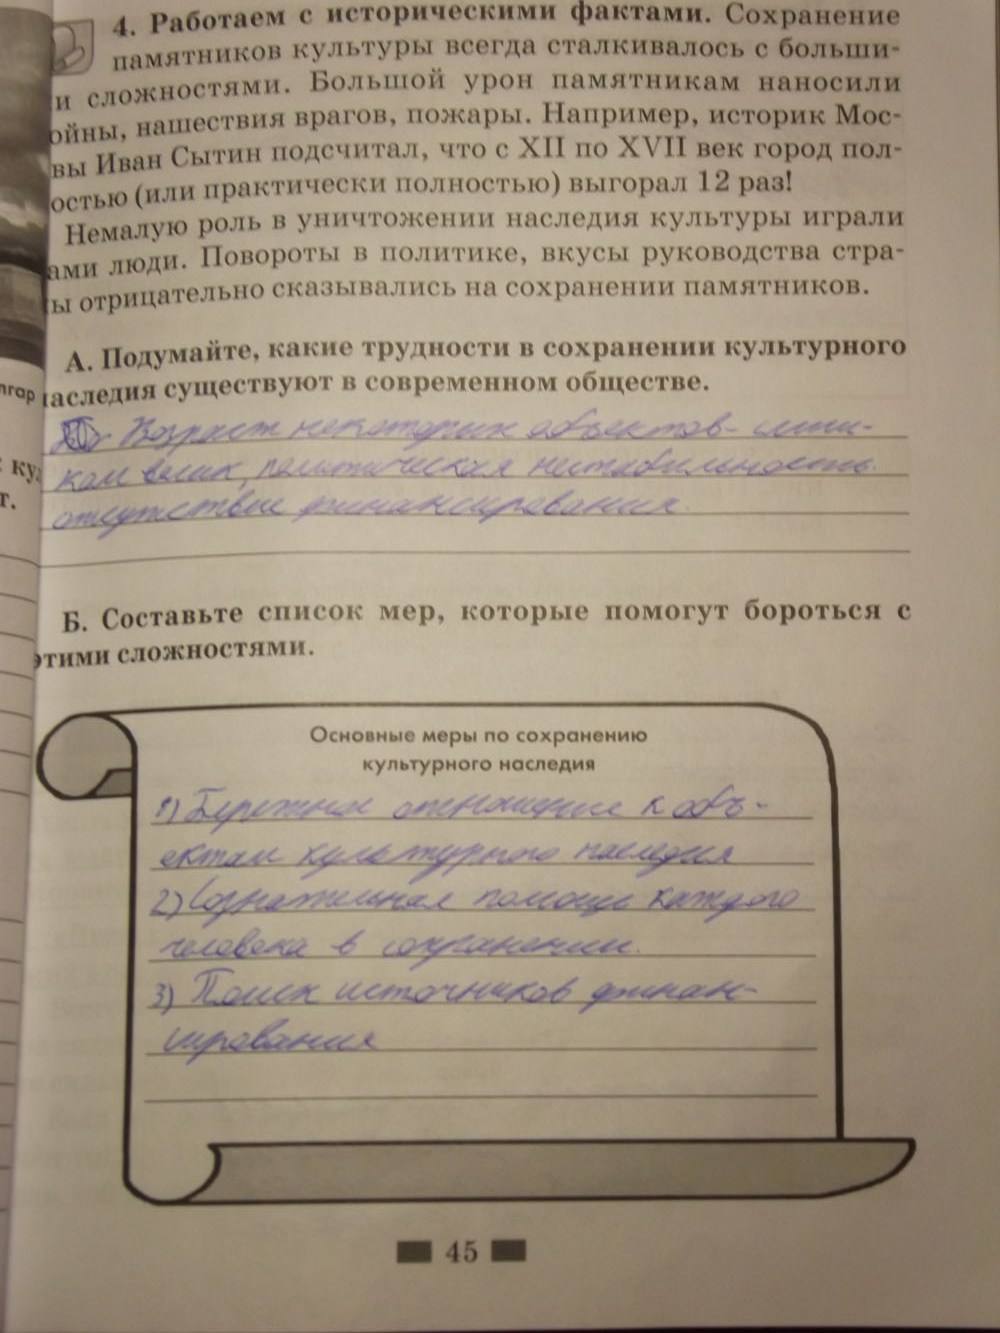 4. Работаем с историческими фактами. Сохранение
памятников культуры всегда сталкивалось с больши-
и сложностями. Большой урон памятникам наносили
ойны, нашествия врагов, пожары. Например, историк Мос-
вы Иван Сытин подсчитал, что с XII по XVII век город пол-
остью (или практически полностью) выгорал 12 раз!
Немалую роль в уничтожении наследия культуры играли
ами люди. Повороты в политике, вкусы руководства стра-
ы отрицательно сказывались на сохранении памятников.
А. Подумайте, какие трудности в сохранении культурного
наследия существуют в современном обществе.
лгар
Возраст некоторых объектов - слиш-
ком велик, политическая нестабильность.
отсутствие финансирования.
ку
т.
Б. Составьте список мер, которые помогут бороться с
этими сложностями.
Основные меры по сохранению
культурного наследия
1) Бережное отношение к объ-
ектам культурного наследия
2) Сознательная помощь каждого
человека в сохранении.
3) Поиск источников финан-
сирования
45